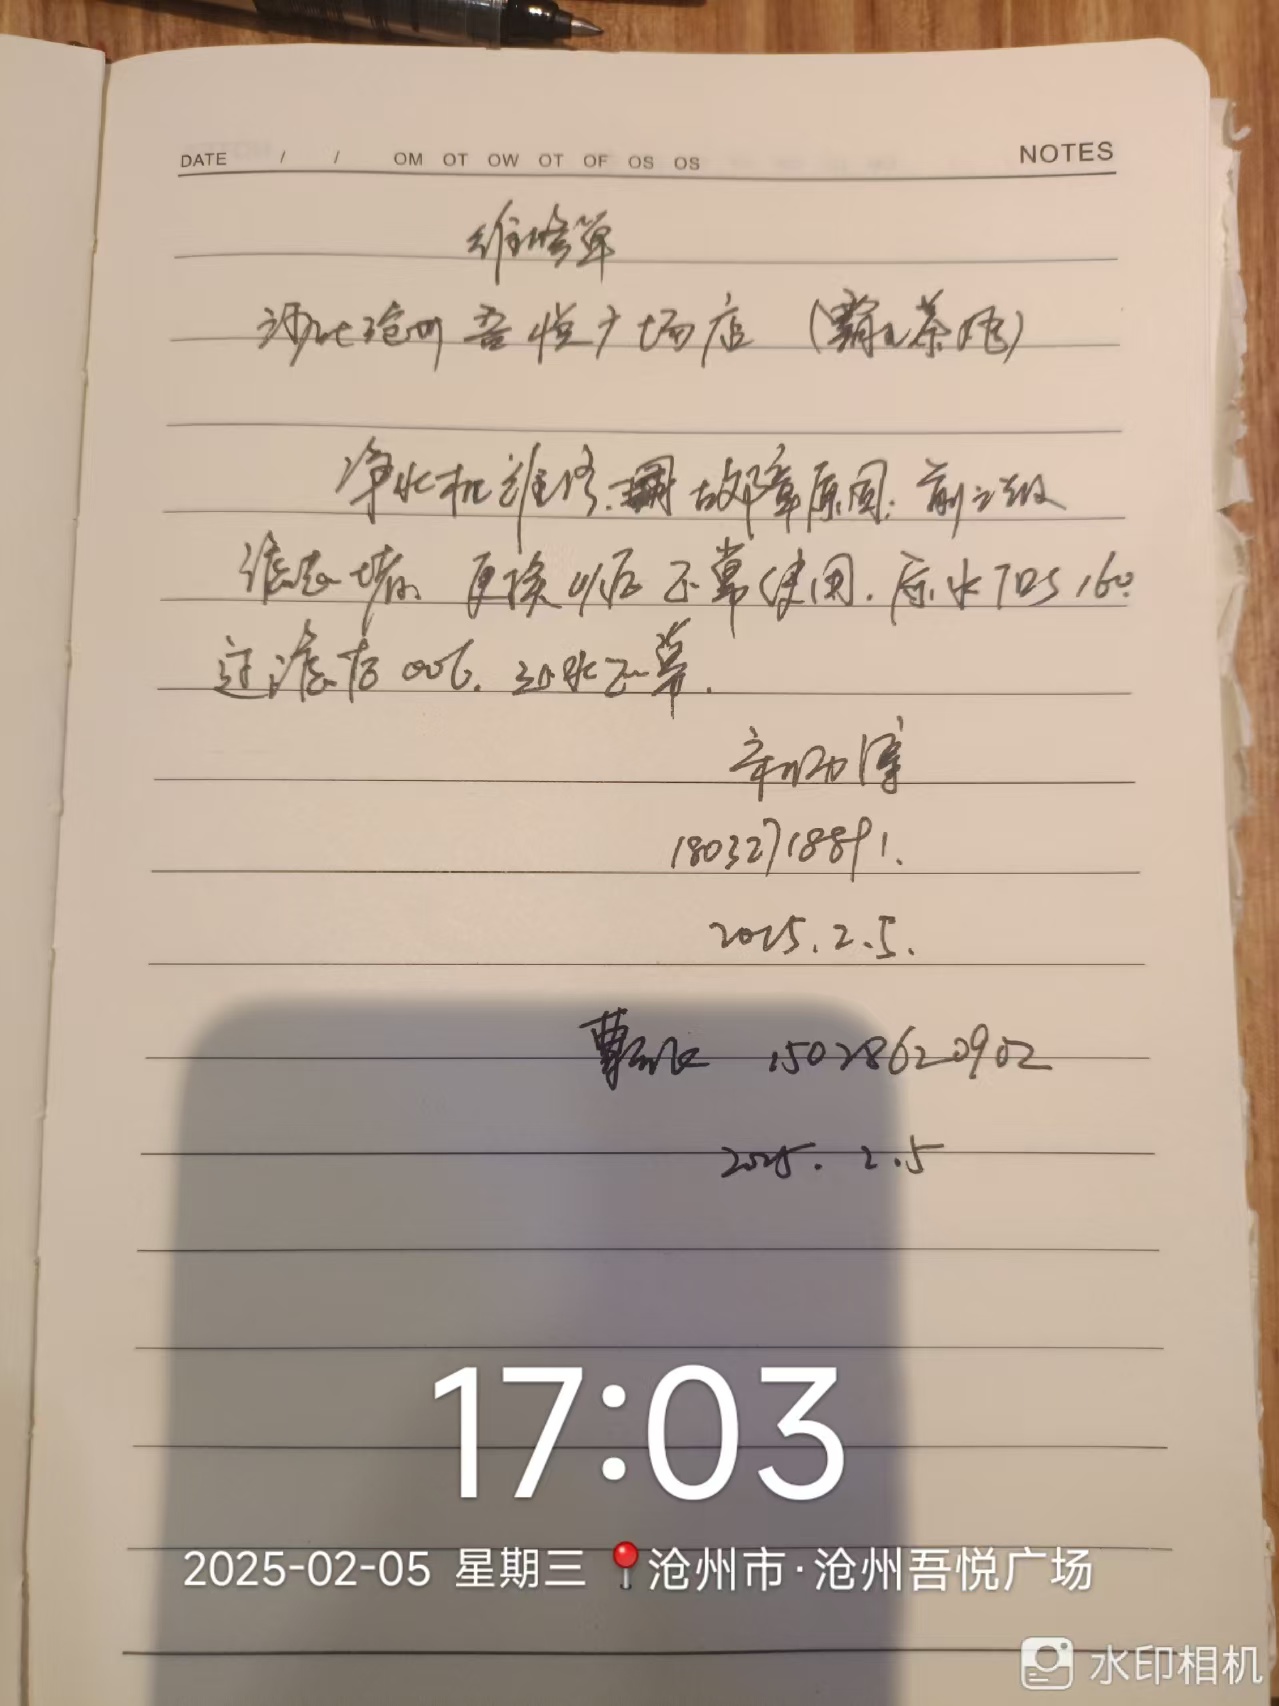 DATE / / OM OT OW OT OF OS OS NOTES
维修单
河北沧州吾悦广场店 (霸王茶姬)
净水机维修. 故障原因: 前三级
滤芯堵. 更换以后正常使用. 原水TDS 160
过滤后006. 出水正常.
18032718891.
2025.2.5.
曹 15028620902
2025. 2.5
17:03
2025-02-05 星期三 沧州市·沧州吾悦广场
水印相机